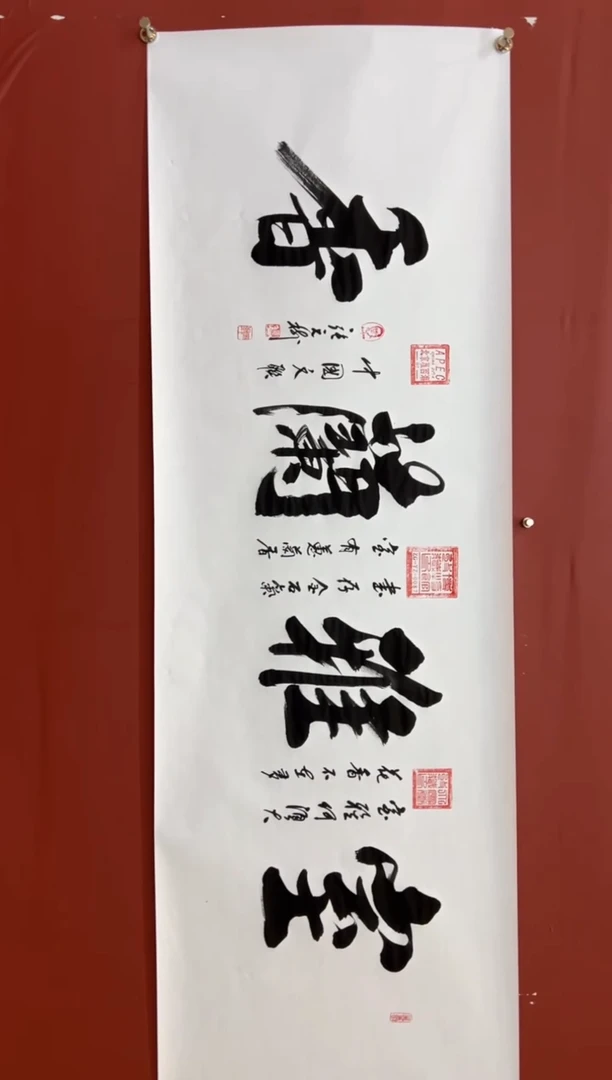 室雅蘭香
室雅何須大
花香不在多
書存金石氣
室有蕙蘭香
中國文聯